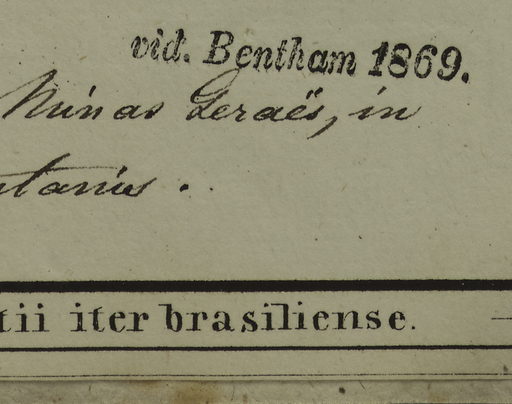 vid. Bentham 1869.
Minas Geraës, in
tanis.
tii iter brasiliense.